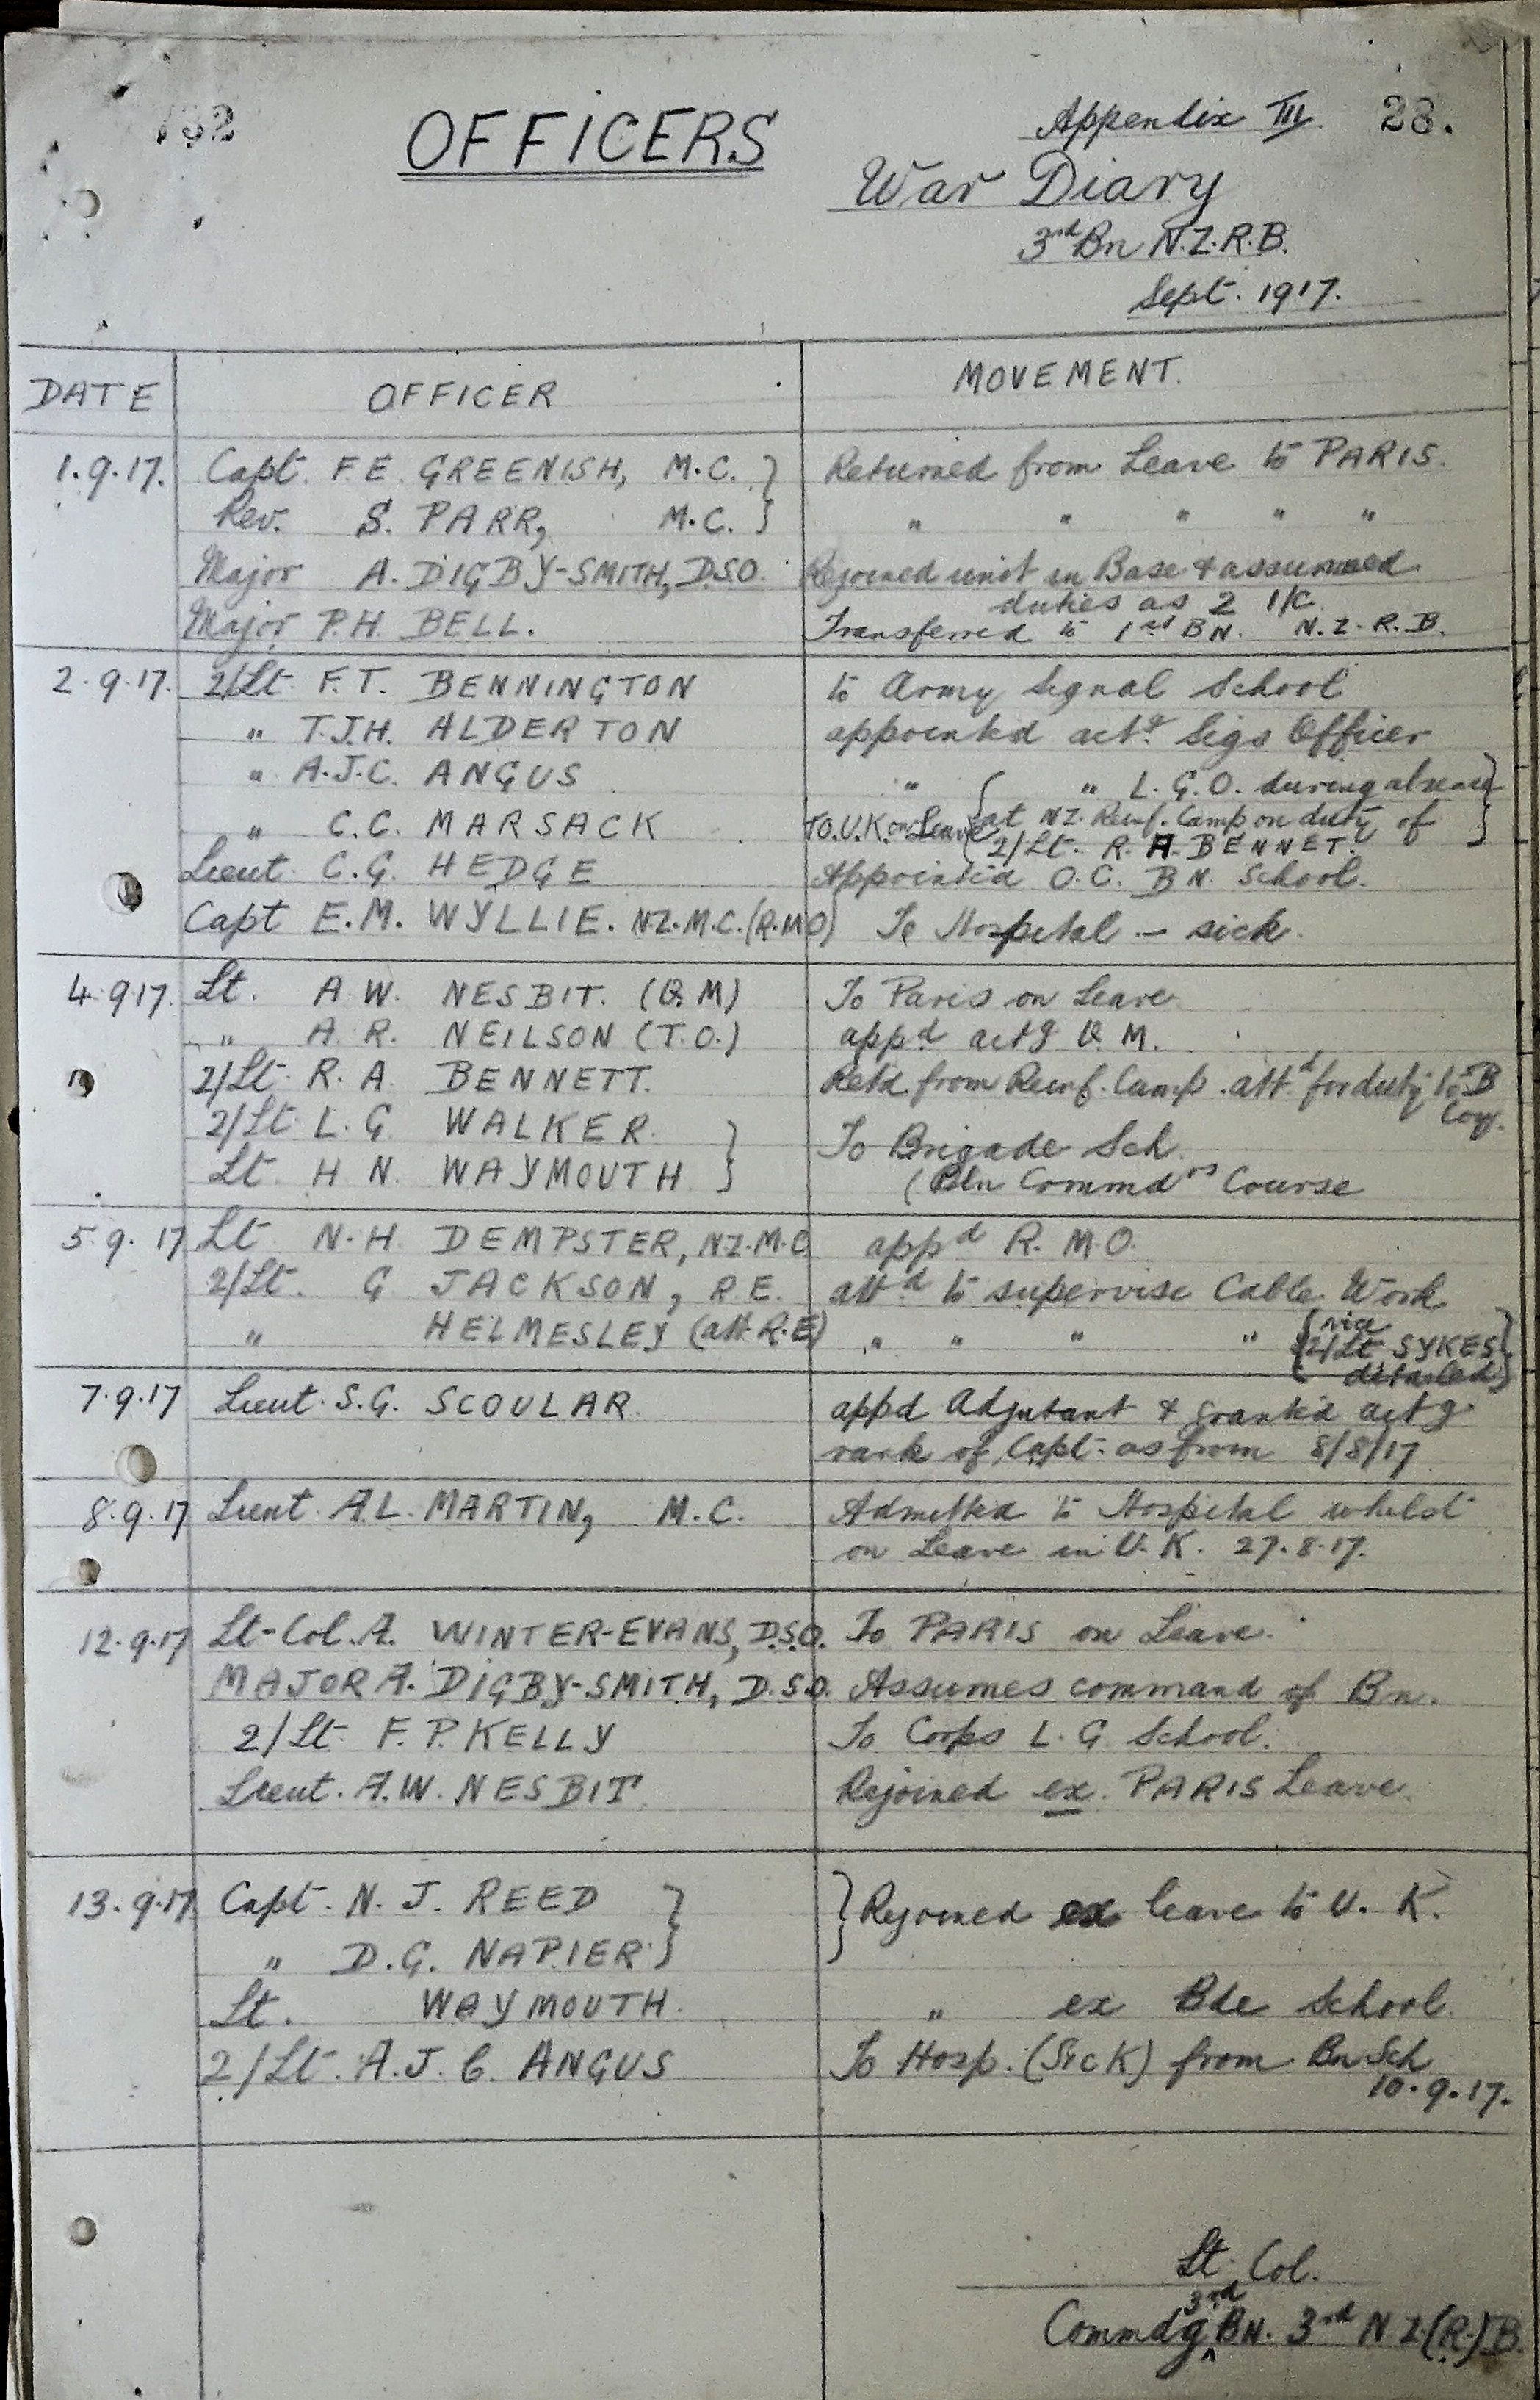 132 OFFICERS Appendix III 28.
War Diary
3rd Bn N.Z.R.B.
Sept. 1917.
DATE OFFICER MOVEMENT.
1.9.17. Capt. F.E. GREENISH, M.C. } Returned from Leave to PARIS.
Rev. S. PARR, M.C. } " " " " "
Major A. DIGBY-SMITH, D.S.O. Rejoined unit in Base & assumed
duties as 2 I/C
Major P.H. BELL. Transferred to 1st BN. N.Z.R.B.
2.9.17. 2/Lt F.T. BENNINGTON to Army Signal School
" T.J.H. ALDERTON appointed actg Sigs Officer
" A.J.C. ANGUS " " L.G.O. during absence
" C.C. MARSACK TO.U.K. on Leave { at NZ. Reinf. Camp on duty of }
2/Lt. R.A. BENNET.
Lieut. C.G. HEDGE Appointed O.C. BN. School.
Capt E.M. WYLLIE. N.Z.M.C. (R.M.O) To Hospital - sick.
4.9.17. Lt. A.W. NESBIT. (Q.M) To Paris on Leave
" A.R. NEILSON (T.O.) appd actg Q.M.
2/Lt. R.A. BENNETT. Retd from Reinf. Camp. attd for duty to B
Coy.
2/Lt L.G WALKER. }
Lt. H N. WAYMOUTH } To Brigade Sch.
(Pltn Commdrs Course
5.9.17 Lt N.H. DEMPSTER, N.Z.M.C appd R.M.O.
2/Lt. G JACKSON, R.E. attd to supervise Cable Work
" HELMESLEY (att. R.E) " " " " { vice
2/Lt SYKES }
detailed
7.9.17 Lieut. S.G. SCOULAR. appd Adjutant & granted actg
rank of Capt. as from 8/8/17
8.9.17 Lieut. A.L. MARTIN, M.C. Admitted to Hospital whilst
on Leave in U.K. 27.8.17.
12.9.17 Lt-Col. A. WINTER-EVANS, D.S.O. To PARIS on Leave.
MAJOR A. DIGBY-SMITH, D.S.O. Assumes command of Bn.
2/Lt F.P. KELLY To Corps L.G. School.
Lieut. A.W. NESBIT. Rejoined ex. PARIS Leave.
13.9.17 Capt. N.J. REED } } Rejoined ex leave to U.K.
" D.G. NAPIER }
Lt. WAYMOUTH. " ex Bde School.
2/Lt. A.J.C. ANGUS To Hosp. (SICK) from Bn Sch
10.9.17.
Lt. Col.
3rd
Commdg BN. 3rd N Z (R.) B.